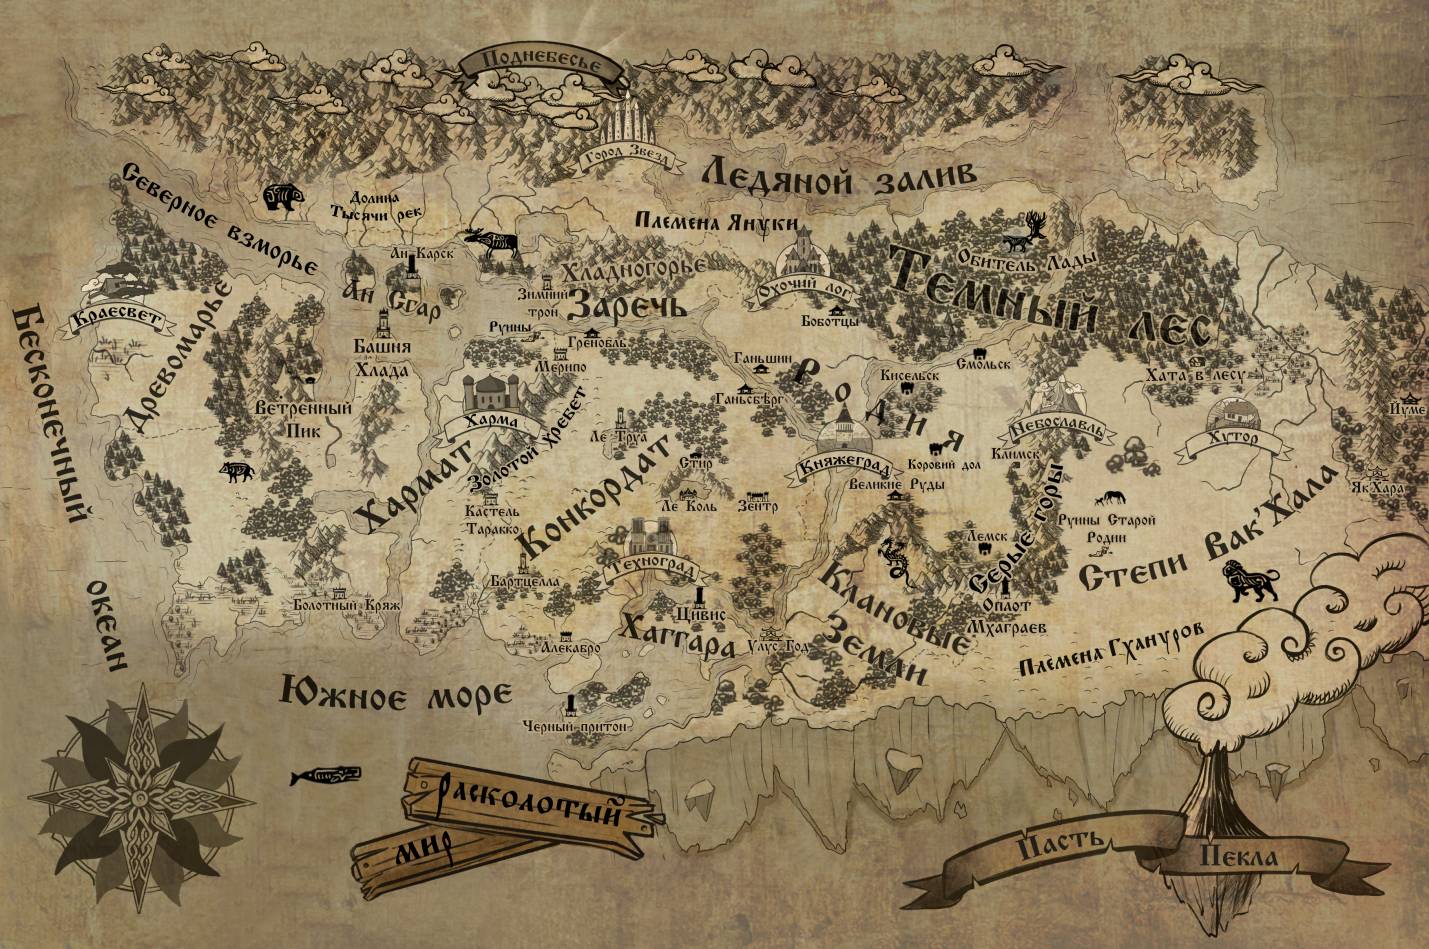 Поднебесье
Город Звезд
Ледяной залив
Северное взморье
Долина
Тысячи рек
Племена Януки
Ан Карск
Ан Сгар
Хладногорье
Зимний
трой
Заречь
Охочий лог
Боботцы
Обитель Лады
Темный лес
Краесвет
Древомарье
Бесконечный
океан
Башня
Хлада
Руины
Гренобль
Мерипо
Ганьшин
Ганьсбёрг
Родия
Кисельск
Смольск
Хата в лесу
Йуме
Ветренный
Пик
Харма
Хармат
Золотой хребет
Ле Труа
Стир
Княжеград
Коровий дол
Великие Руды
Небославль
Климск
Хутор
ЯкХара
Кастель
Таракко
Конкордат
Ле Коль
Зентр
Руины Старой
Родии
Степи Вак'Хала
Серые горы
Лемск
Оплот
Мхаграев
Клановые
Земли
Племена Гхануров
Техноград
Бартцелла
Цивис
Хаггара
Улус Год
Болотный Кряж
Алекабро
Южное море
Черный притон
Расколотый
мир
Пасть
Пекла